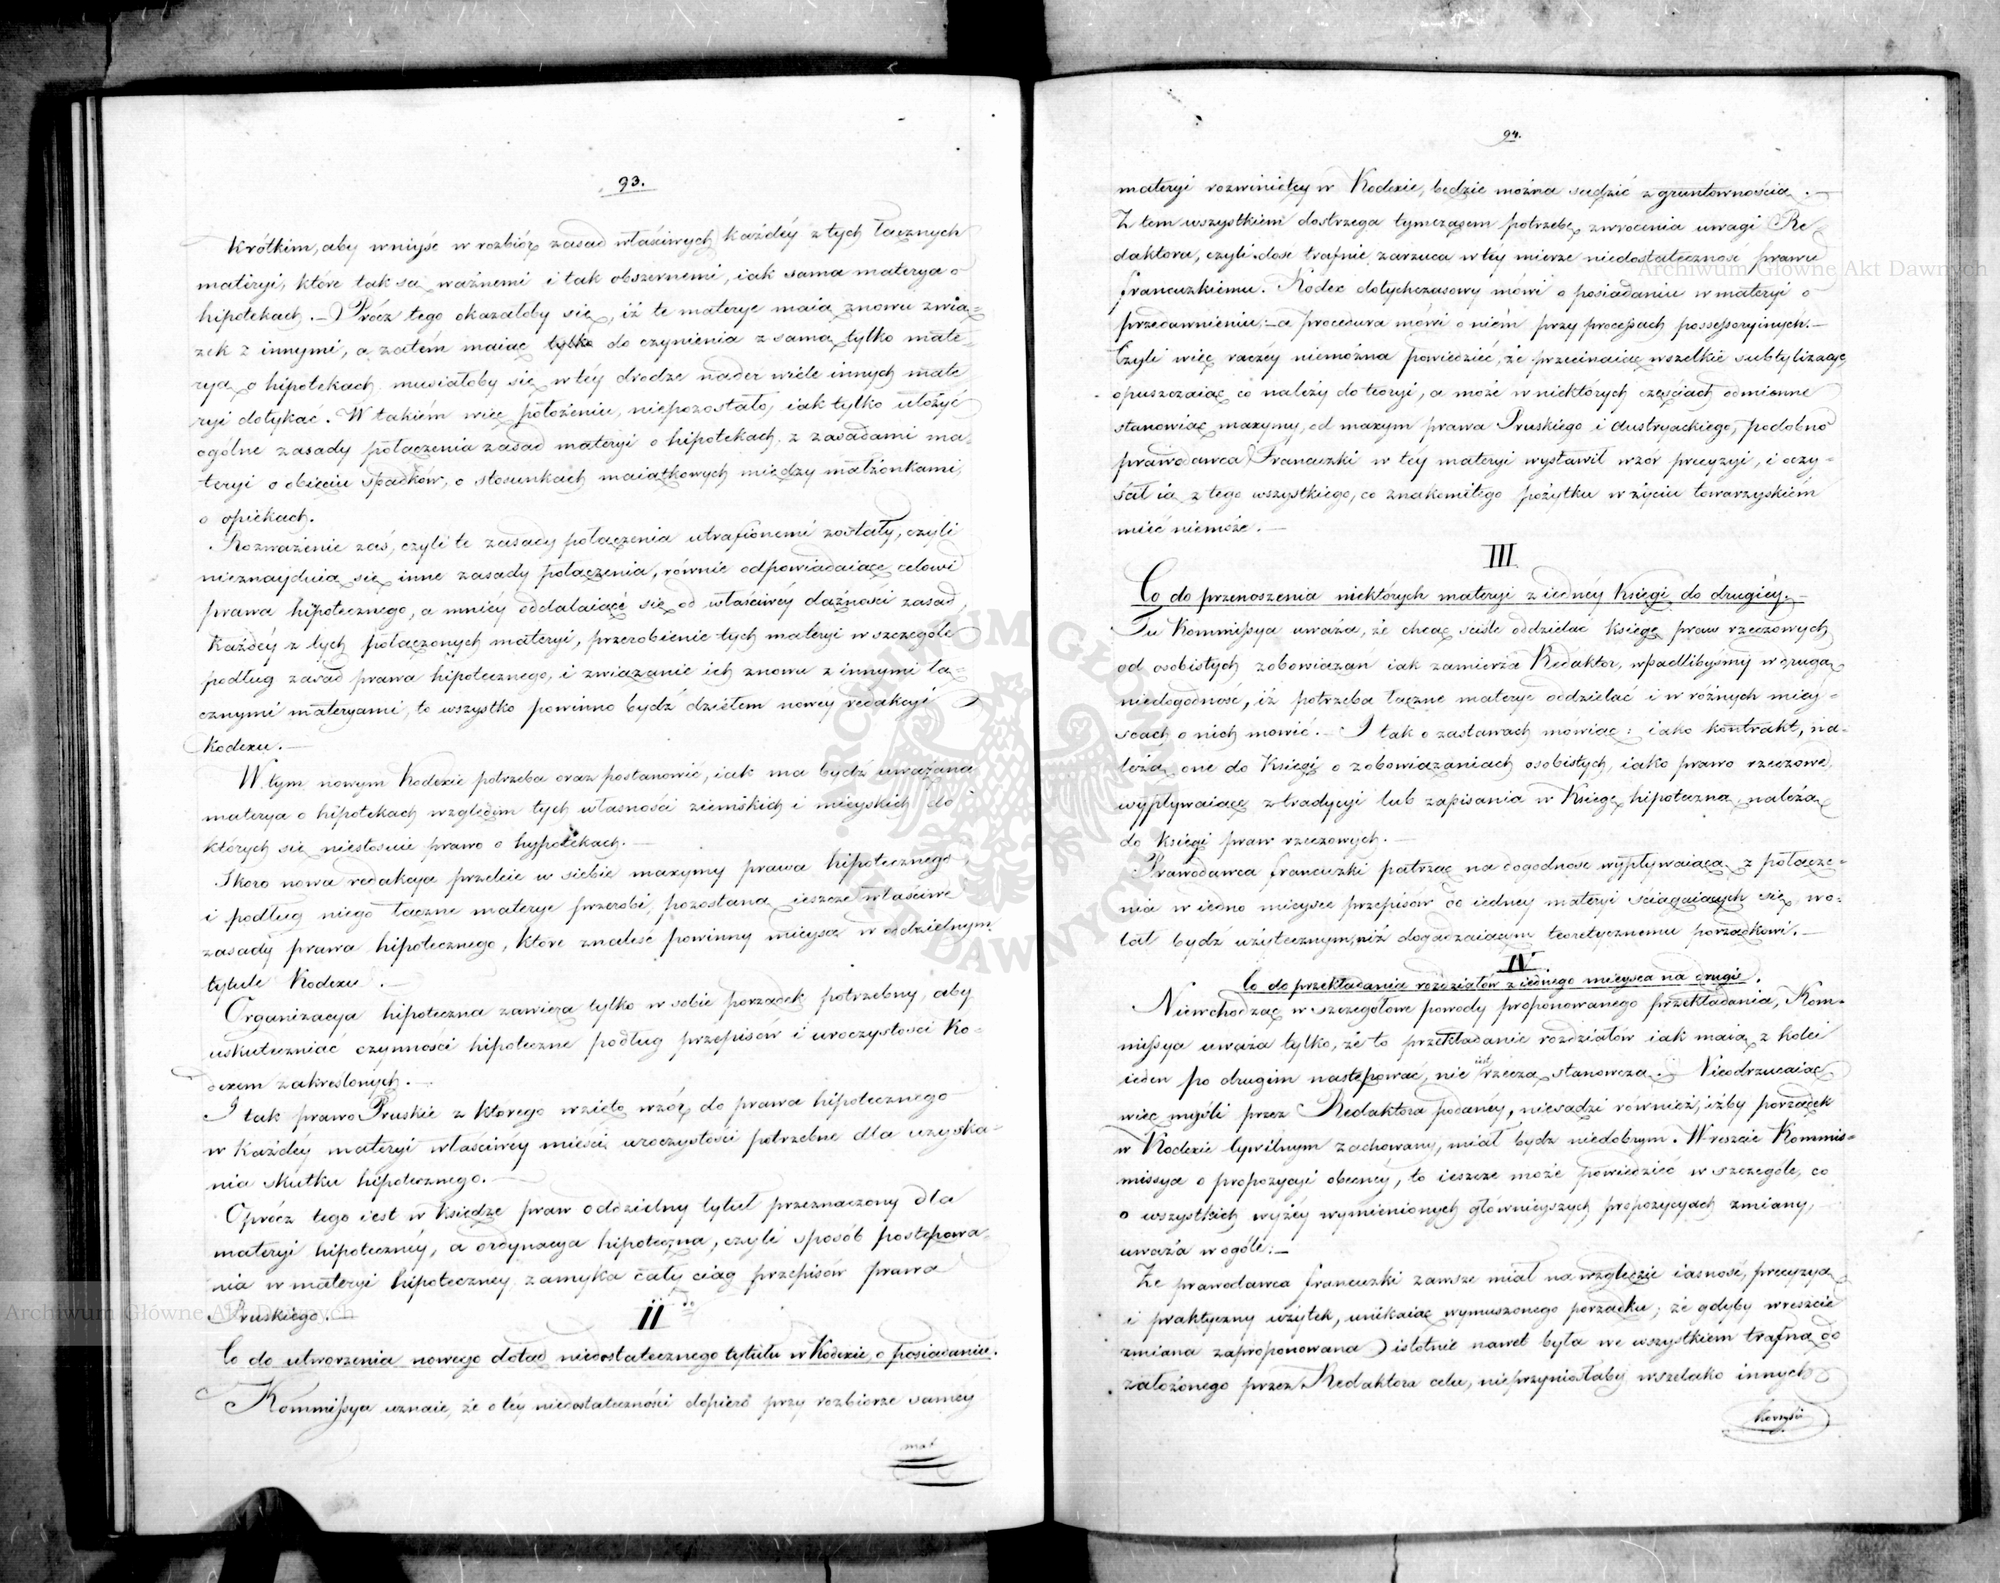 93.
krótkim, aby wniyść w rozbiór zasad właściwych każdéy z tych łącznych
materyi, które tak są ważnemi i tak obszernemi, iak sama materya o
hipotekach. — Prócz tego okazałoby się, iż te materye maią znowu zwią-
zek z innymi, a zatém maiąc tylko do czynienia z samą tylko mate-
ryą o hipotekach musiałoby się w téy drodze nader wiele innych mate
ryi dotykać. W takiém więc położeniu, niepozostało, iak tylko ułożyć
ogólne zasady połączenia zasad materyi o hipotekach, z zasadami ma-
teryi o obięciu spadków, o stosunkach maiątkowych między małżonkami,
o opiekach.
Rozważenie zaś, czyli te zasady połączenia utrafionemi zostały, czyli
nieznayduią się inne zasady połączenia, równie odpowiadaiące celowi
prawa hipotecznego, a mniéy oddalaiące się od właściwéy dążności zasad,
każdéy z tych połączonych materyi, przerobienie tych materyi w szczególe
podług zasad prawa hipotecznego, i związanie ich znowu z innymi łą-
cznymi materyami, to wszystko powinno bydź dziełem nowéy redakcyi
kodexu. —
W tym nowym Kodexie potrzeba oraz postanowić, iak ma bydź uważana
materya o hipotekach względem tych własności ziemskich i mieyskich do
których się niestosuie prawo o hypotekach. —
Skoro nowa redakcya przeleie w siebie maxymy prawa hipotecznego,
i podług niego łączne materye przerobi, pozostaną ieszcze właściwe
zasady prawa hipotecznego, które znaleść powinny mieysce w oddzielnym
tytule Kodexu. —
Organizacya hipoteczna zawiera tylko w sobie porządek potrzebny, aby
uskuteczniać czynności hipoteczne podług przepisów i uroczystości Ko-
dexem zakreślonych. —
I tak prawo Pruskie z którego wzięto wzór do prawa hipotecznego
w każdéy materyi właściwéy mieści uroczystości potrzebne dla uzyska-
nia skutku hipotecznego. —
Oprócz tego iest w księdze praw oddzielny tytuł przeznaczony dla
materyi hipotecznéy, a ordynacya hipoteczna, czyli sposób postępowa-
nia w materyi hipoteczney zamyka cały ciąg przepisów prawa
Pruskiego. —
II do
Co do utworzenia nowego dotąd niedostatecznego tytułu w Kodexie, o posiadaniu.
Kommissya uznaie, że o téy niedostateczności dopiero przy rozbiorze samey
mat
94.
materyi rozwiniętey w Kodexie, będzie można sądzić z gruntownością. —
Z tem wszystkiem dostrzega tymczasem potrzebę zwrócenia uwagi Re
daktora, czyli dość trafnie zarzuca w tey mierze niedostateczność prawu
francuzkiemu. Kodex dotychczasowy mówi o posiadaniu w materyi o
przedawnieniu: — a procedura mówi o niém przy processach possessoryinych. —
Czyli więc raczéy niemożna powiedzieć, że przecinaiąc wszelkie subtylizacye,
opuszczaiąc co należy do teoryi, a może w niektórych częściach odmienne
stanowiąc maxymy, od maxym prawa Pruskiego i Austryackiego, podobno
prawodawca Francuzki w téy materyi wystawił wzór precyzyi, i oczy-
ścił ią z tego wszystkiego, co znakomitego pożytku w życiu towarzyskiém
mieć niemoże. —
III
Co do przenoszenia niektórych materyi z iednéy Księgi do drugiéy. —
Tu Kommissya uważa, że chcąc ściśle oddzielać księgę praw rzeczowych
od osobistych zobowiązań iak zamierza Redaktor, wpadlibyśmy w drugą
niedogodność, iż potrzeba łączne materye oddzielać i w różnych miey-
scach o nich mówić. — I tak o zastawach mówiąc: iako kontrakt, na-
leżą one do Księgi o zobowiązaniach osobistych, iako prawo rzeczowe,
wypływaiące z tradycyi lub zapisania w Księgę hipoteczną, należą
do księgi praw rzeczowych. —
Prawodawca francuzki patrząc na dogodność wypływaiącą z połącze-
nia w iedno mieysce przepisów do iedney materyi ściągaiących się, wo-
lał bydź użytecznym, niż dogadzaiącym teoretycznemu porządkowi. —
IV
Co do przekładania rozdziałów z iednego mieysca na drugie.
Niewchodząc w szczegółowe powody proponowanego przekładania, Kom-
missya uważa tylko, że to przekładanie rozdziałów iak maią z kolei
ieden po drugim następować, nie iest rzeczą stanowczą. Nieodrzucaiąc
więc myśli przez Redaktora podanéy, niesądzi również, iżby porządek
w Kodexie Cywilnym zachowany, miał bydź niedobrym. Wreszcie Kommis-
missya o propozycyi obecnéy, to ieszcze może powiedzieć w szczególe, co
o wszystkich wyżéy wymienionych głównieyszych propozycyach zmiany,
uważa w ogóle: —
Że prawodawca francuzki zawsze miał na względzie iasność, precyzyą
i praktyczny użytek, unikaiąc wymuszonego porządku; że gdyby wreszcie
zmiana zaproponowana istotnie nawet była we wszystkiem trafną do
założonego przez Redaktora celu, nieprzyniosłaby wszelako innych
korzyści
Archiwum Główne Akt Dawnych
Archiwum Główne Akt Dawnych
ARCHIWUM GŁÓWNE AKT DAWNYCH